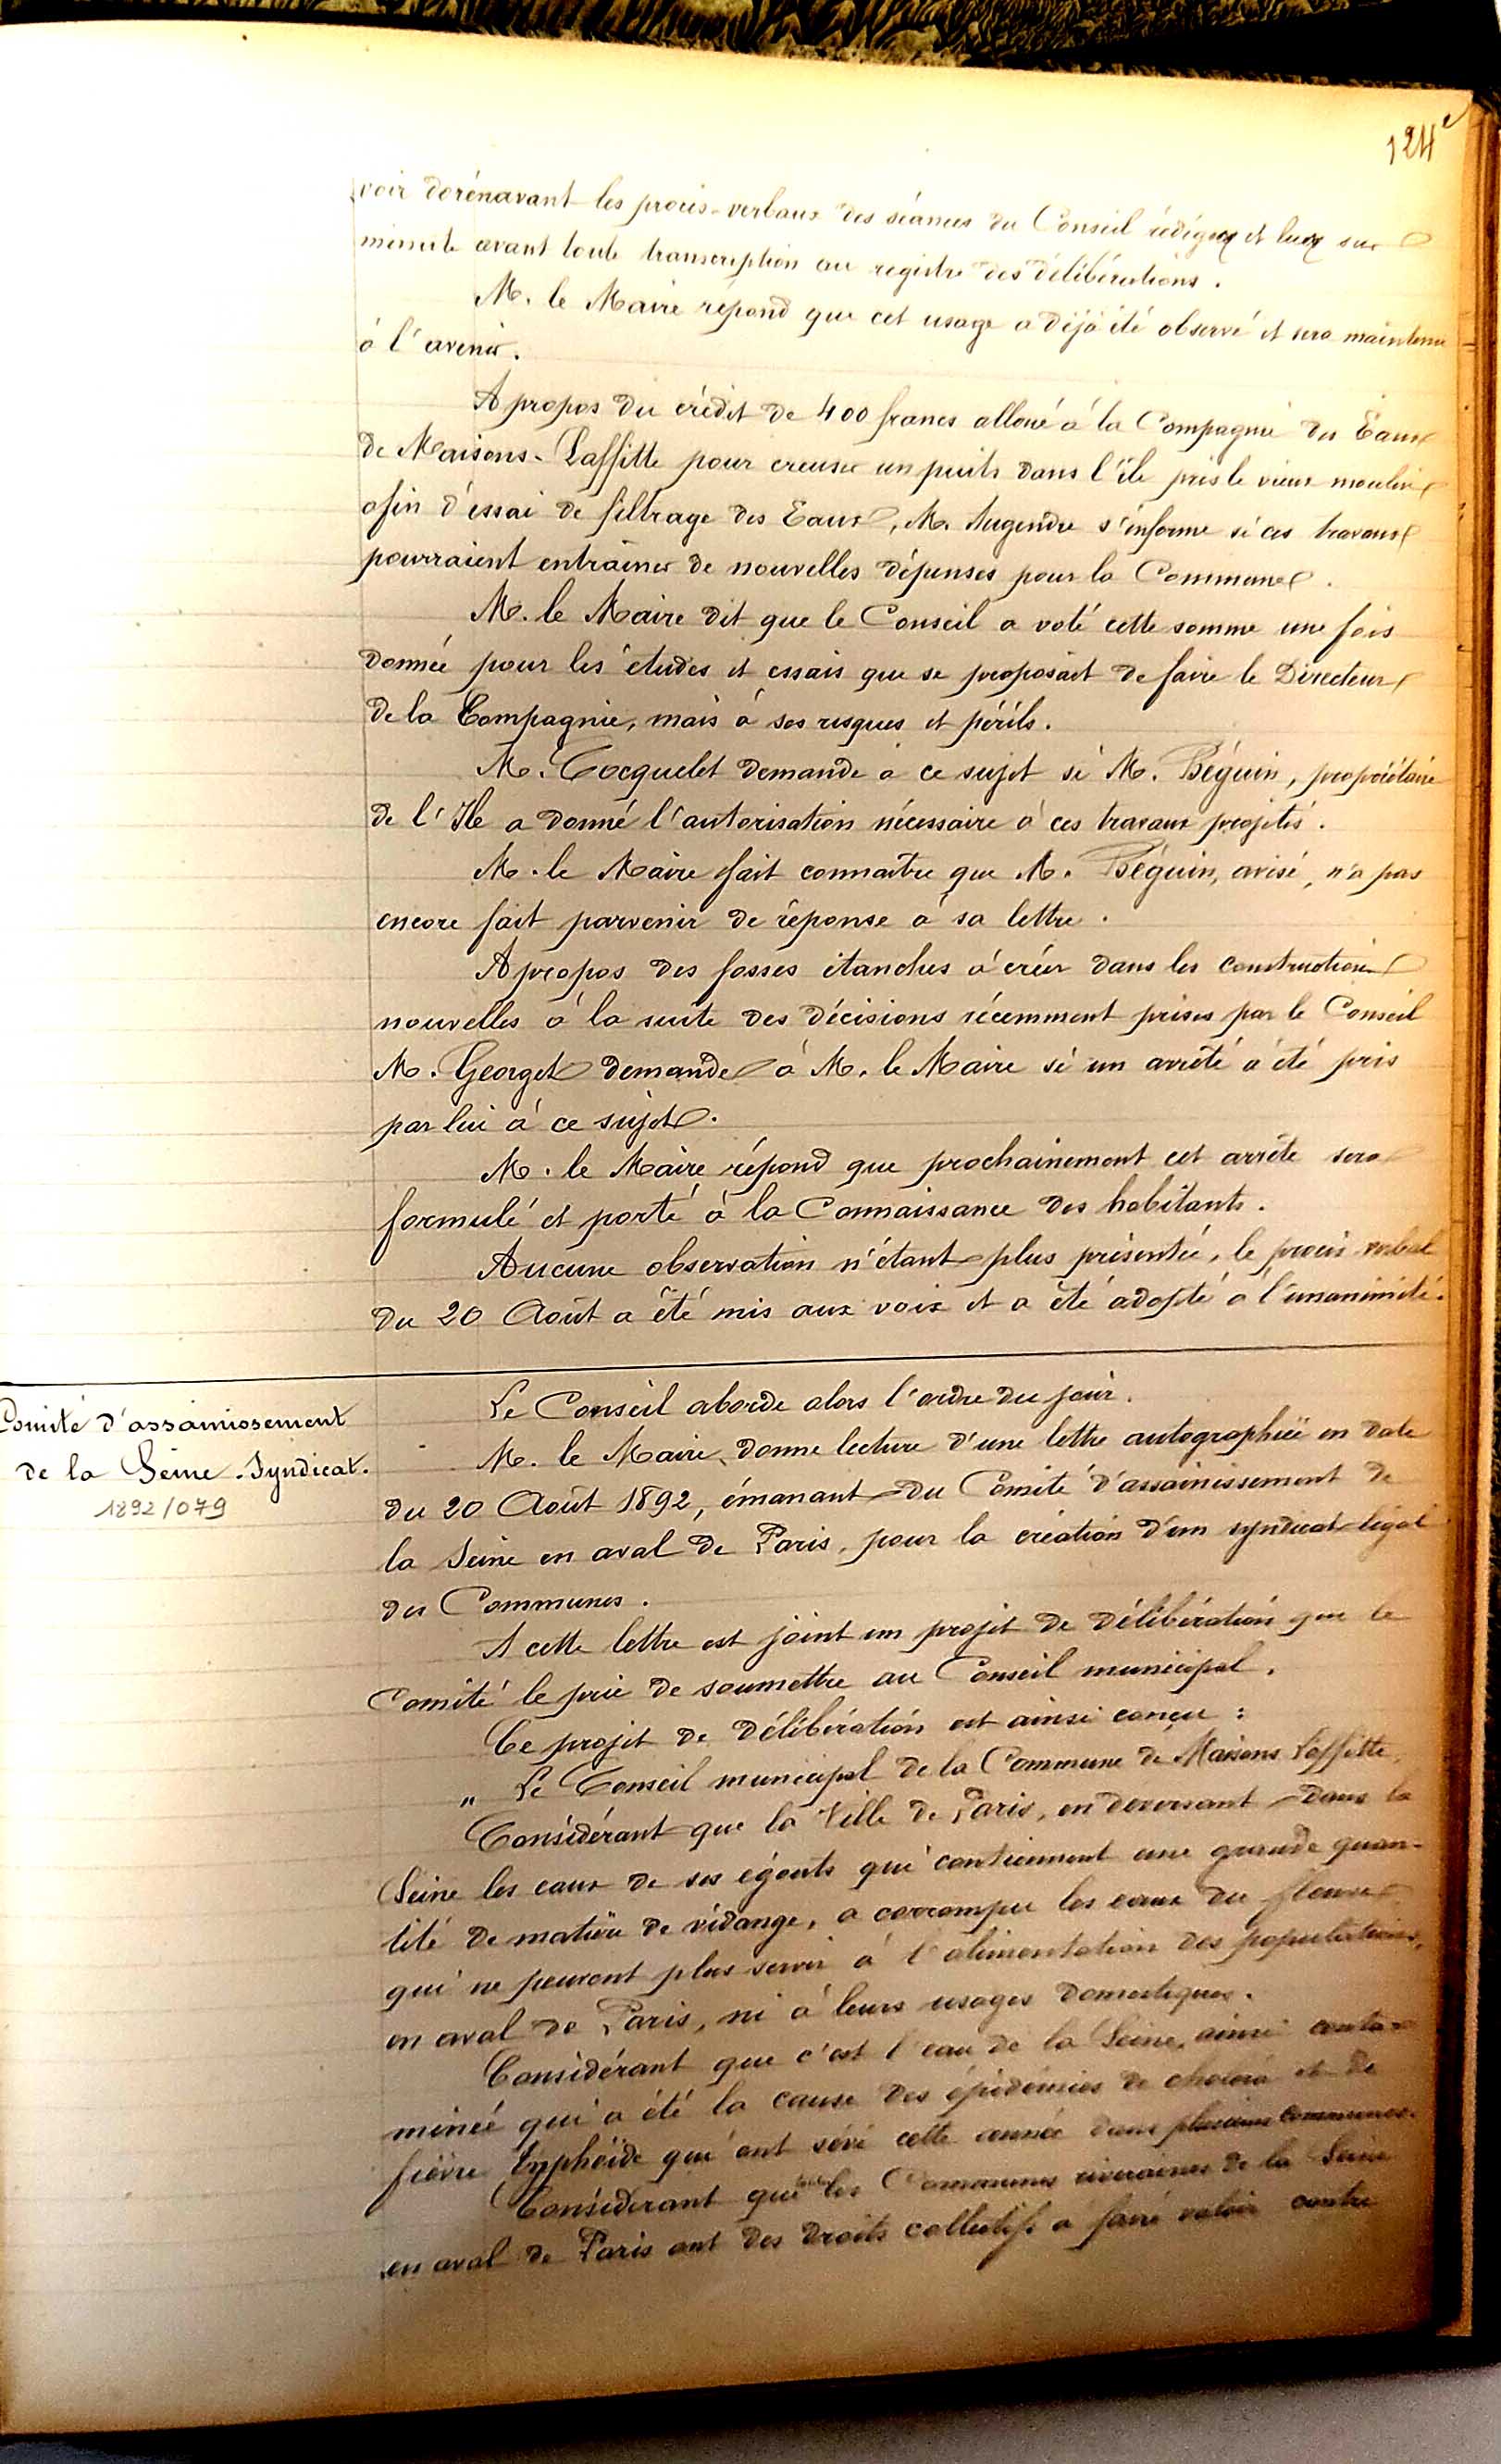 124e
voir dorénavant les procès-verbaux des séances du Conseil rédigés et lus sur
minute avant toute transcription au registre des délibérations.
M. le Maire répond que cet usage a déjà été observé et sera maintenu
à l'avenir.
A propos du crédit de 400 francs alloué à la Compagnie des Eaux
de Maisons-Laffitte pour creuser un puits dans l'île près le vieux moulin
afin d'essai de filtrage des Eaux, M. Augendre s'informe si ces travaux
pourraient entraîner de nouvelles dépenses pour la Commune.
M. le Maire dit que le Conseil a voté cette somme une fois
donnée pour les études et essais que se proposait de faire le Directeur
de la Compagnie, mais à ses risques et périls.
M. Cocquelet demande à ce sujet si M. Béguin, propriétaire
de l'Ile a donné l'autorisation nécessaire à ces travaux projetés.
M. le Maire fait connaître que M. Béguin, avisé, n'a pas
encore fait parvenir de réponse à sa lettre.
A propos des fosses étanches à créer dans les constructions
nouvelles à la suite des décisions récemment prises par le Conseil
M. Georget demande à M. le Maire si un arrêté a été pris
par lui à ce sujet.
M. le Maire répond que prochainement cet arrêté sera
formulé et porté à la Connaissance des habitants.
Aucune observation n'étant plus présentée, le procès-verbal
du 20 Août a été mis aux voix et a été adopté à l'unanimité.
Comité d'assainissement
de la Seine. Syndicat.
1892/079
Le Conseil aborde alors l'ordre du jour.
M. le Maire donne lecture d'une lettre autographiée en date
du 20 Août 1892, émanant du Comité d'assainissement de
la Seine en aval de Paris, pour la création d'un syndicat légal
des Communes.
A cette lettre est joint un projet de délibération que le
Comité le prie de soumettre au Conseil municipal.
Ce projet de délibération est ainsi conçu :
" Le Conseil municipal de la Commune de Maisons Laffitte,
Considérant que la Ville de Paris, en déversant dans la
Seine les eaux de ses égouts qui contiennent une grande quan-
tité de matière de vidange, a corrompu les eaux du fleuve
qui ne peuvent plus servir à l'alimentation des populations,
en aval de Paris, ni à leurs usages domestiques.
Considérant que c'est l'eau de la Seine, ainsi conta-
minée qui a été la cause des épidémies de choléra et de
fièvre typhoïde qui ont sévi cette année dans plusieurs communes.
Considérant que toutes les Communes riveraines de la Seine
en aval de Paris ont des droits collectifs à faire valoir contre